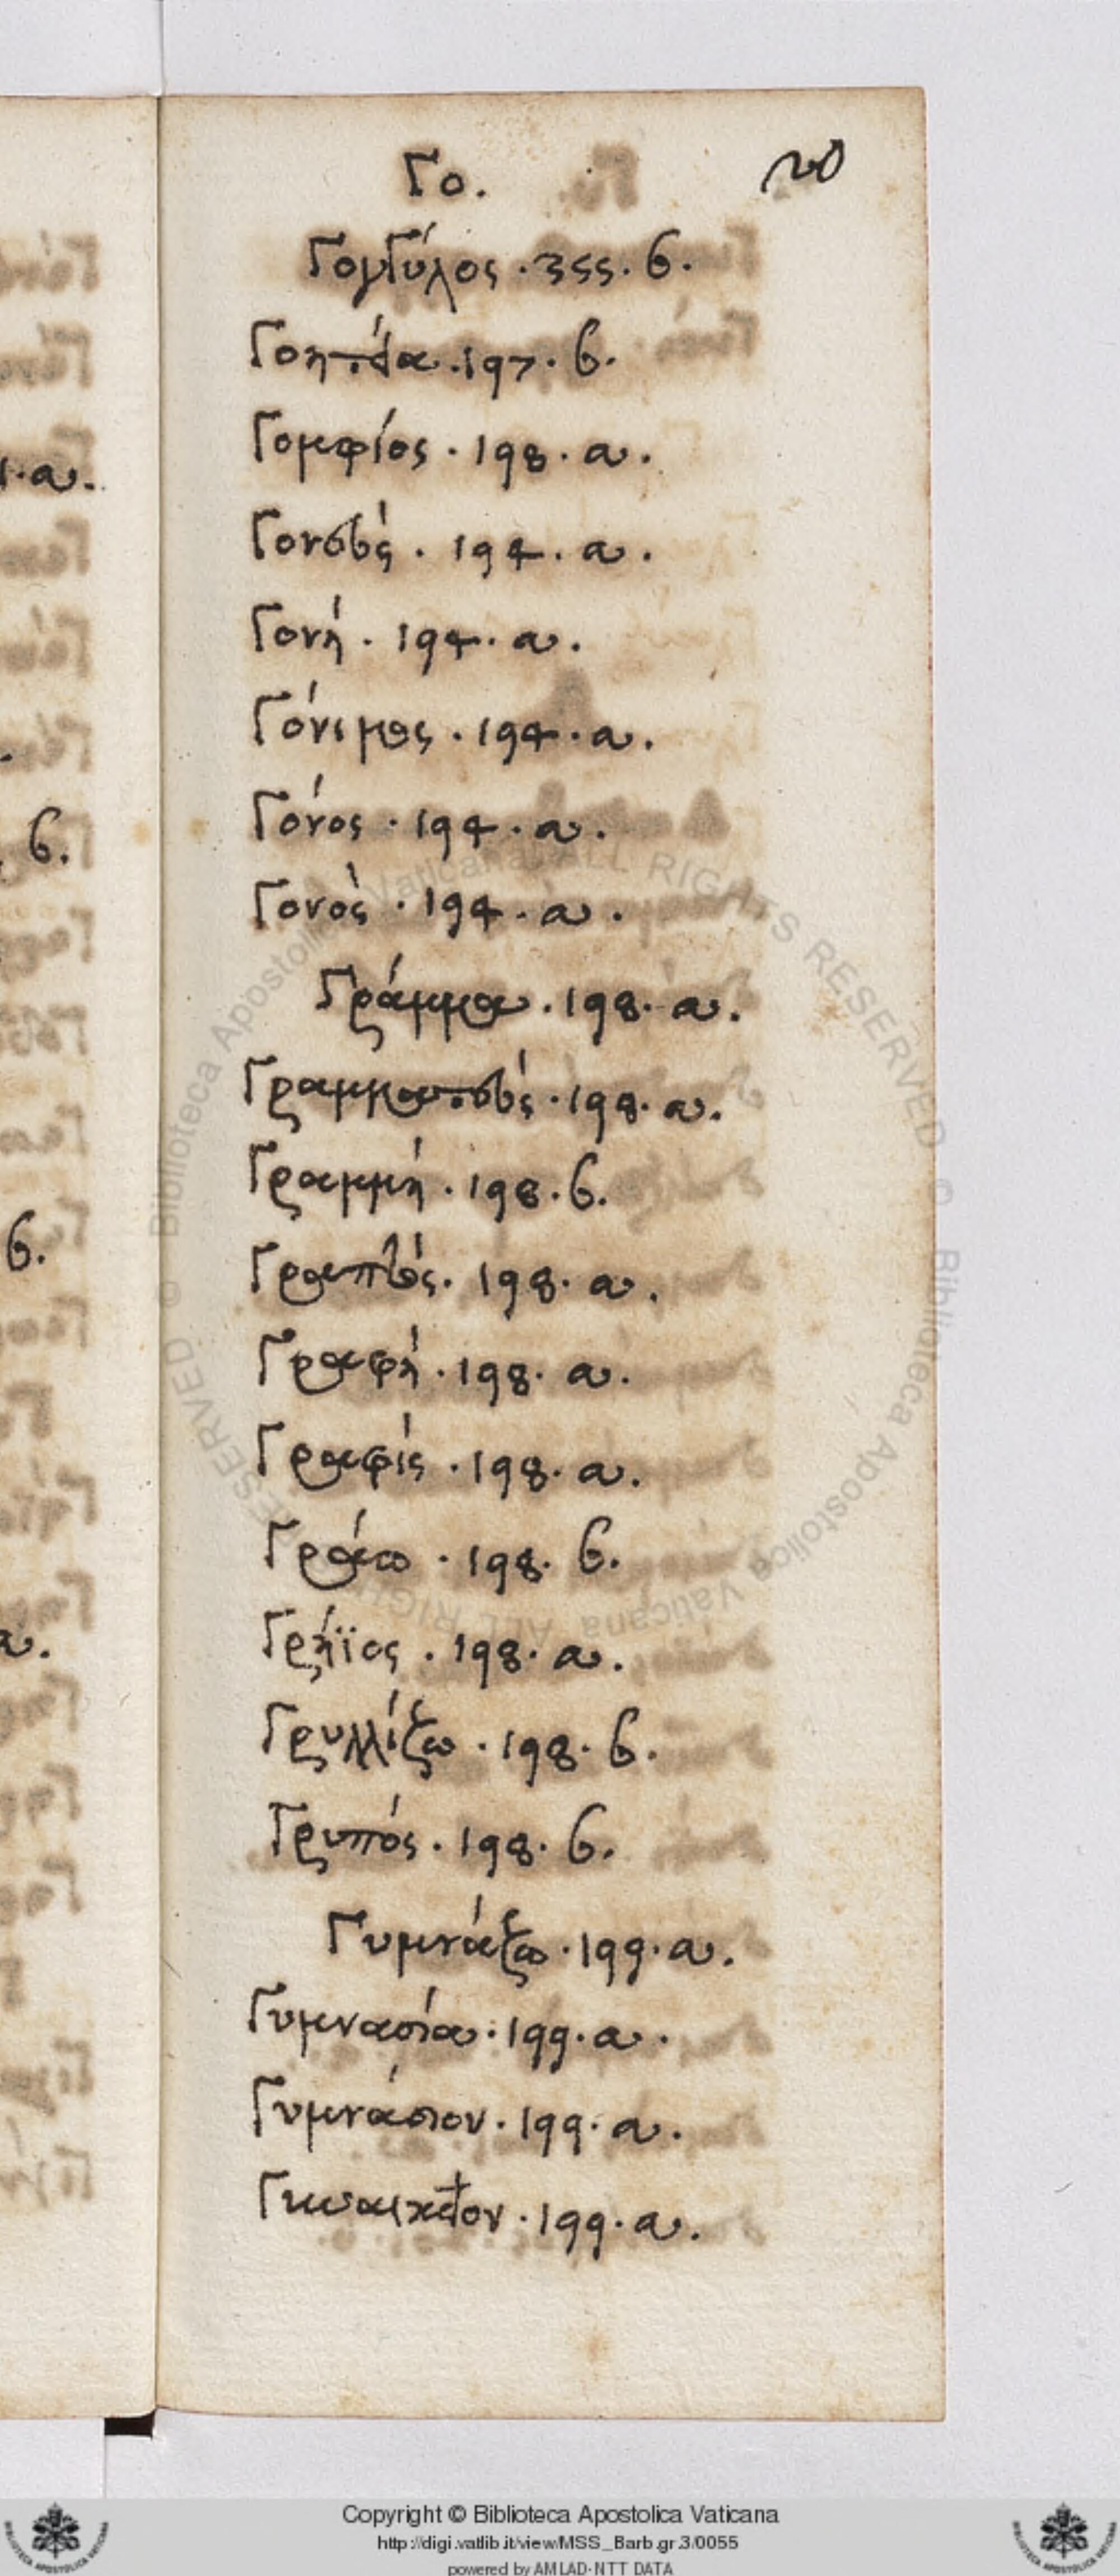 Γο.
20
Γογγύλος . 355. β.
Γοητεία . 197. β.
Γομφίος . 198. α.
Γονεύς . 194. α.
Γονή . 194. α.
Γόνιμος . 194. α.
Γόνος . 194. α.
Γονός . 194. α.
Γράμμα . 198. α.
Γραμματεύς . 198. α.
Γραμμή . 198. β.
Γραπτός . 198. α.
Γραφή . 198. α.
Γραφίς . 198. α.
Γράω . 198. β.
Γρήϊος . 198. α.
Γρυλλίζω . 198. β.
Γρυπός . 198. β.
Γυμνάζω . 199. α.
Γυμνασία . 199. α.
Γυμνάσιον . 199. α.
Γυναικεῖον . 199. α.
ι. α.
β.
β.
α.
© Biblioteca Apostolica Vaticana ALL RIGHTS RESERVED © Biblioteca Apostolica Vaticana ALL RIGHTS RESERVED
Copyright © Biblioteca Apostolica Vaticana
http://digi.vatlib.it/view/MSS_Barb.gr.3/0055
powered by AMLAD-NTT DATA